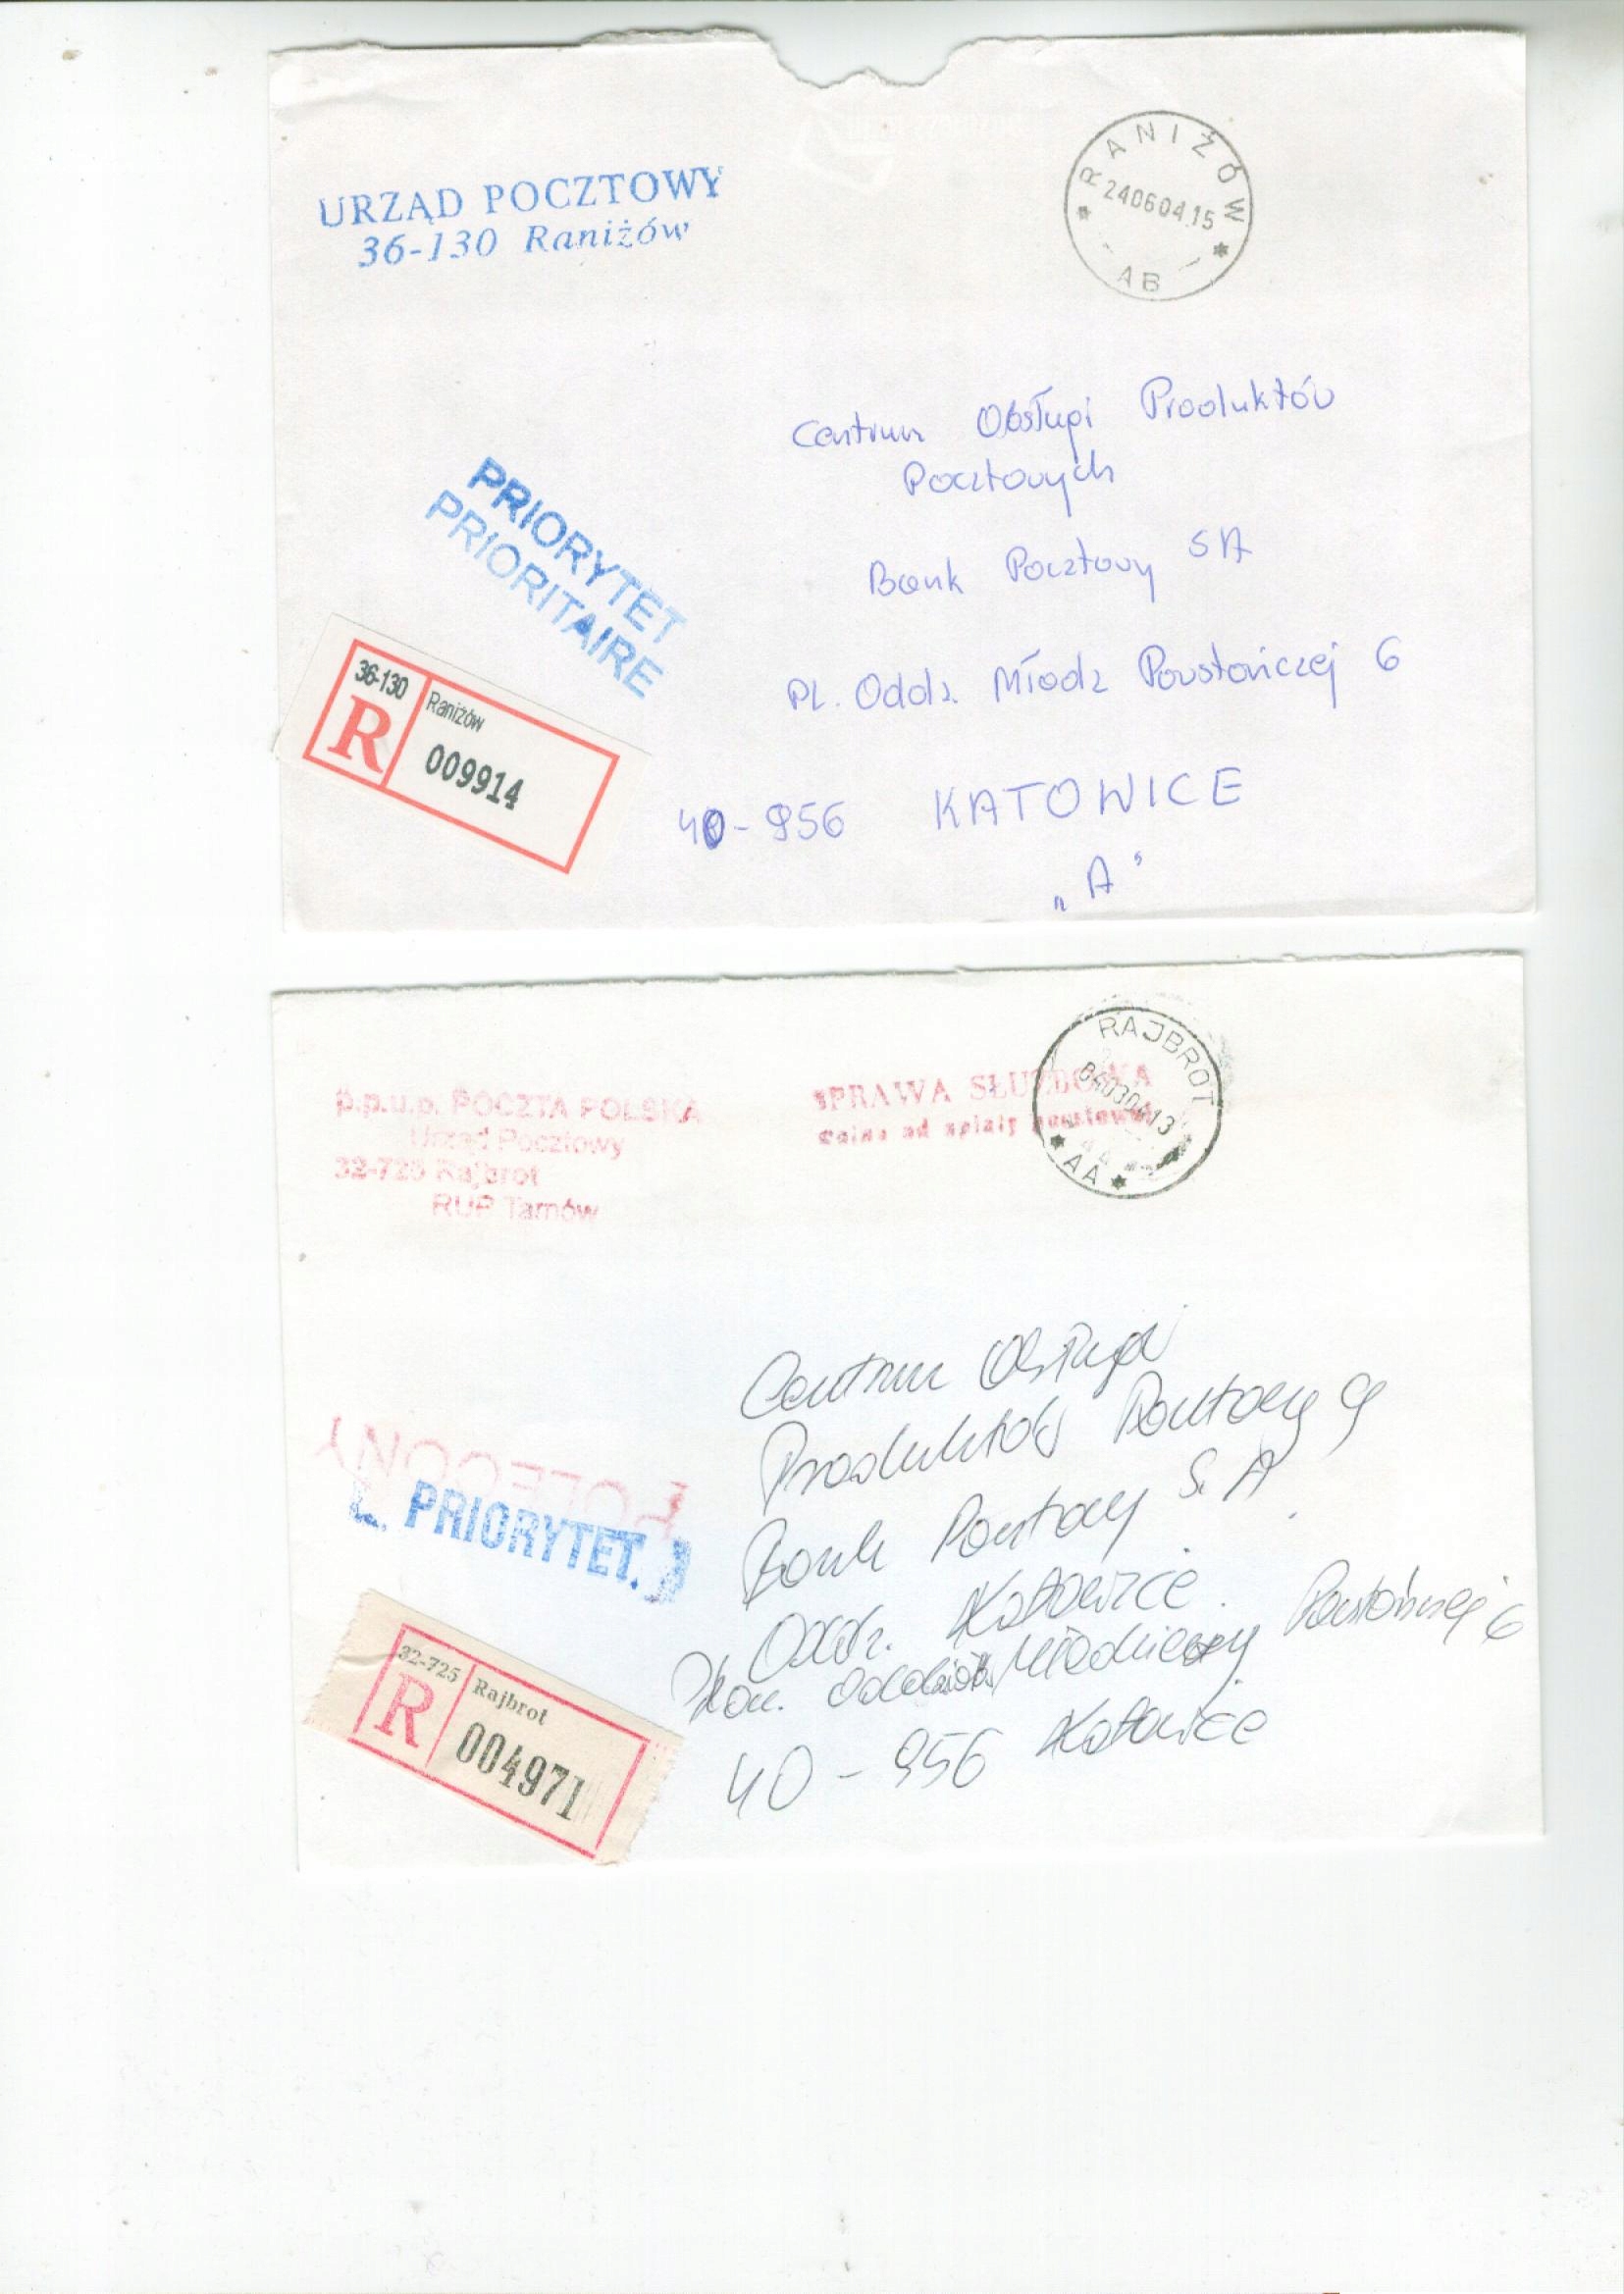 URZĄD POCZTOWY
36-130 Raniżów
RANIŻÓW
24060415
AB
Centrum Obsługi Produktów
Pocztowych
Bank Pocztowy SA
Pl. Oddz. Młodz Powstańczej 6
40-956 KATOWICE
„A"
PRIORYTET
PRIORITAIRE
36-130
R
Raniżów
009914
p.p.u.p. POCZTA POLSKA
Urząd Pocztowy
32-725 Rajbrot
RUP Tarnów
SPRAWA SŁUŻBOWA
RAJBROT
AA
Centrum Obsługi
Produktów
Bank Pocztowy S.A.
Oddz. Katowice
Młodzieży Powstańczej 6
40-956 Katowice
POLECONY
PRIORYTET.
32-725
R
Rajbrot
004971